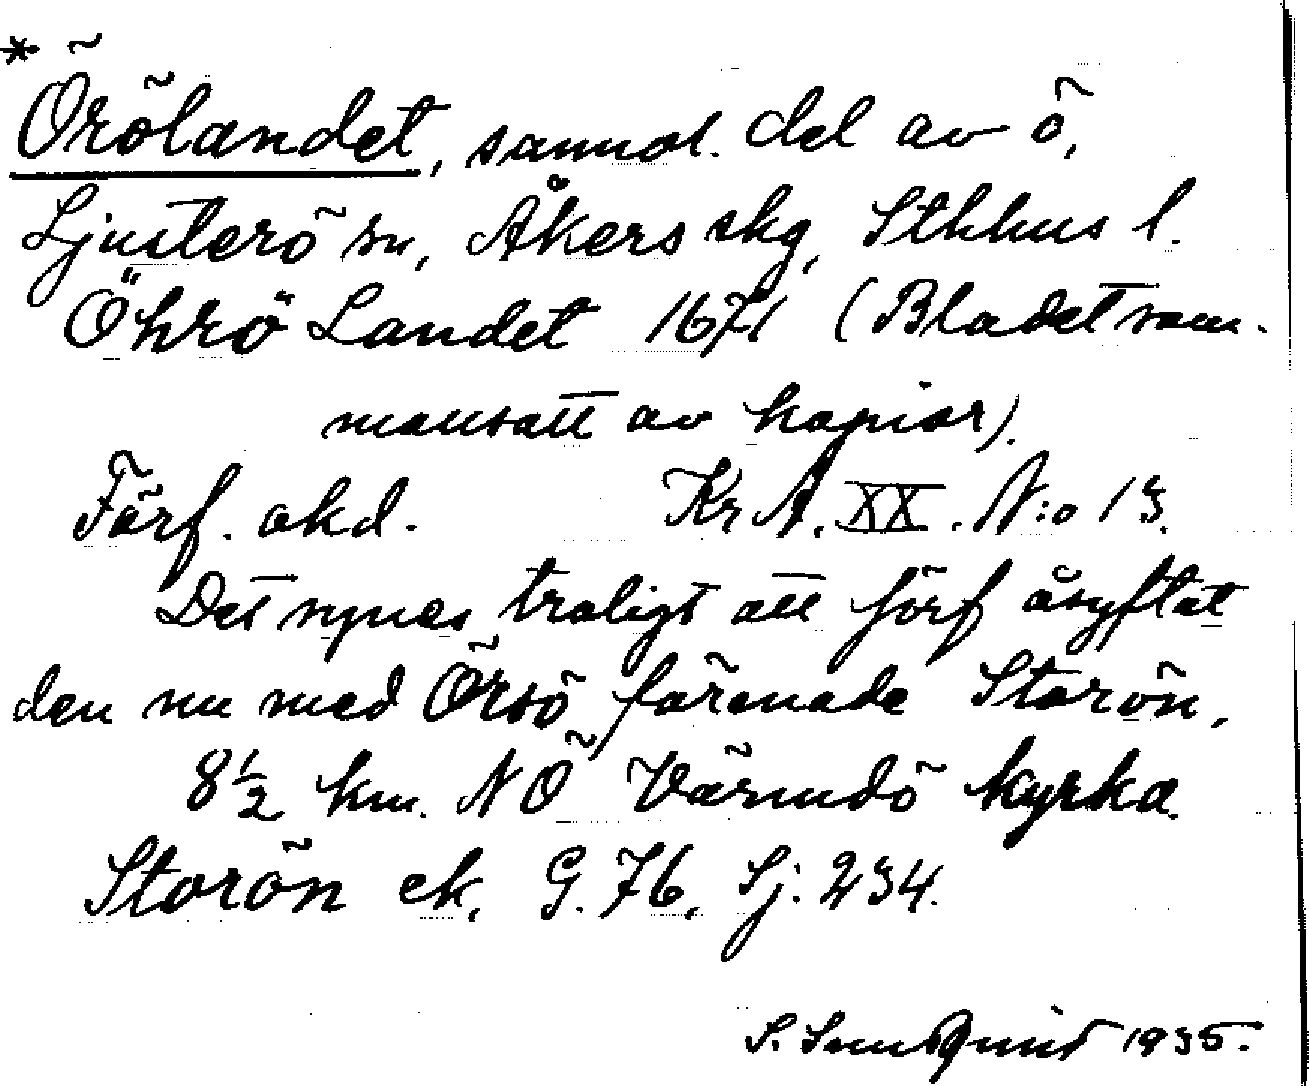 * Örölandet, sannol. del av ö,
Ljusterö sn, Åkers skg, Sthlms l.
Öhrö Landet 1671 (Bladet sam-
mansatt av kopior).
Förf. okd. Kr A. XX. N:o 13.
Det synes troligt att förf åsyftat
den nu med Örsö förenade Storön,
8 1/2 km. NÖ Värmdö kyrka.
Storön ek. G. 76, Sj. 234.
S. 1935.